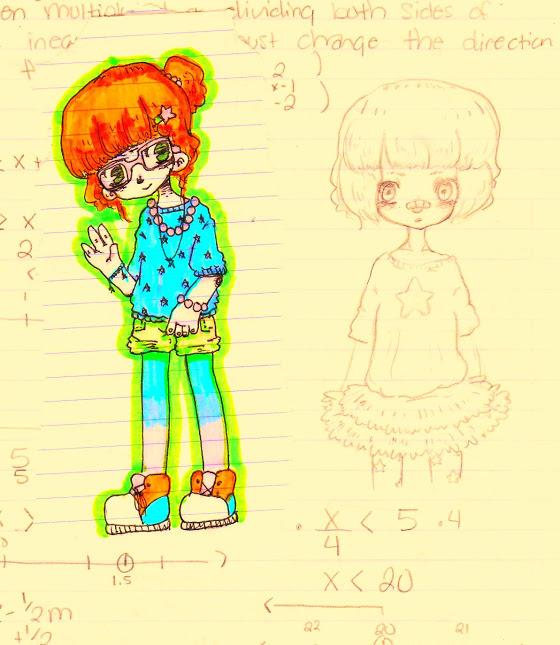 dividing both sides of
just change the direction
2 )
x-1
-2 )
x +
≥ x
2
<
-
+
5
5
. x/4 < 5 .4
x < 20
1.5
- 1/2 m
+1/2
22 20 21